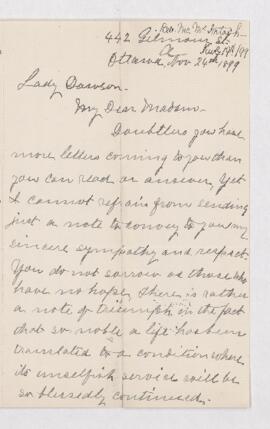 Rev. Mc. McIntosh
442 Gilmour St.
Ottawa, Nov 24th, 1899
Lady Dawson.
My Dear Madam.
Doubtless you have
more letters coming to you than
you can read or answer. Yet
I cannot refrain from sending
just a note to convey to you my
sincere sympathy and respect.
You do not sorrow as those who
have no hope. There is rather
a note of triumph in the fact
that so noble a life has been
translated to a condition where
its unselfish service will be
so blessedly continued.